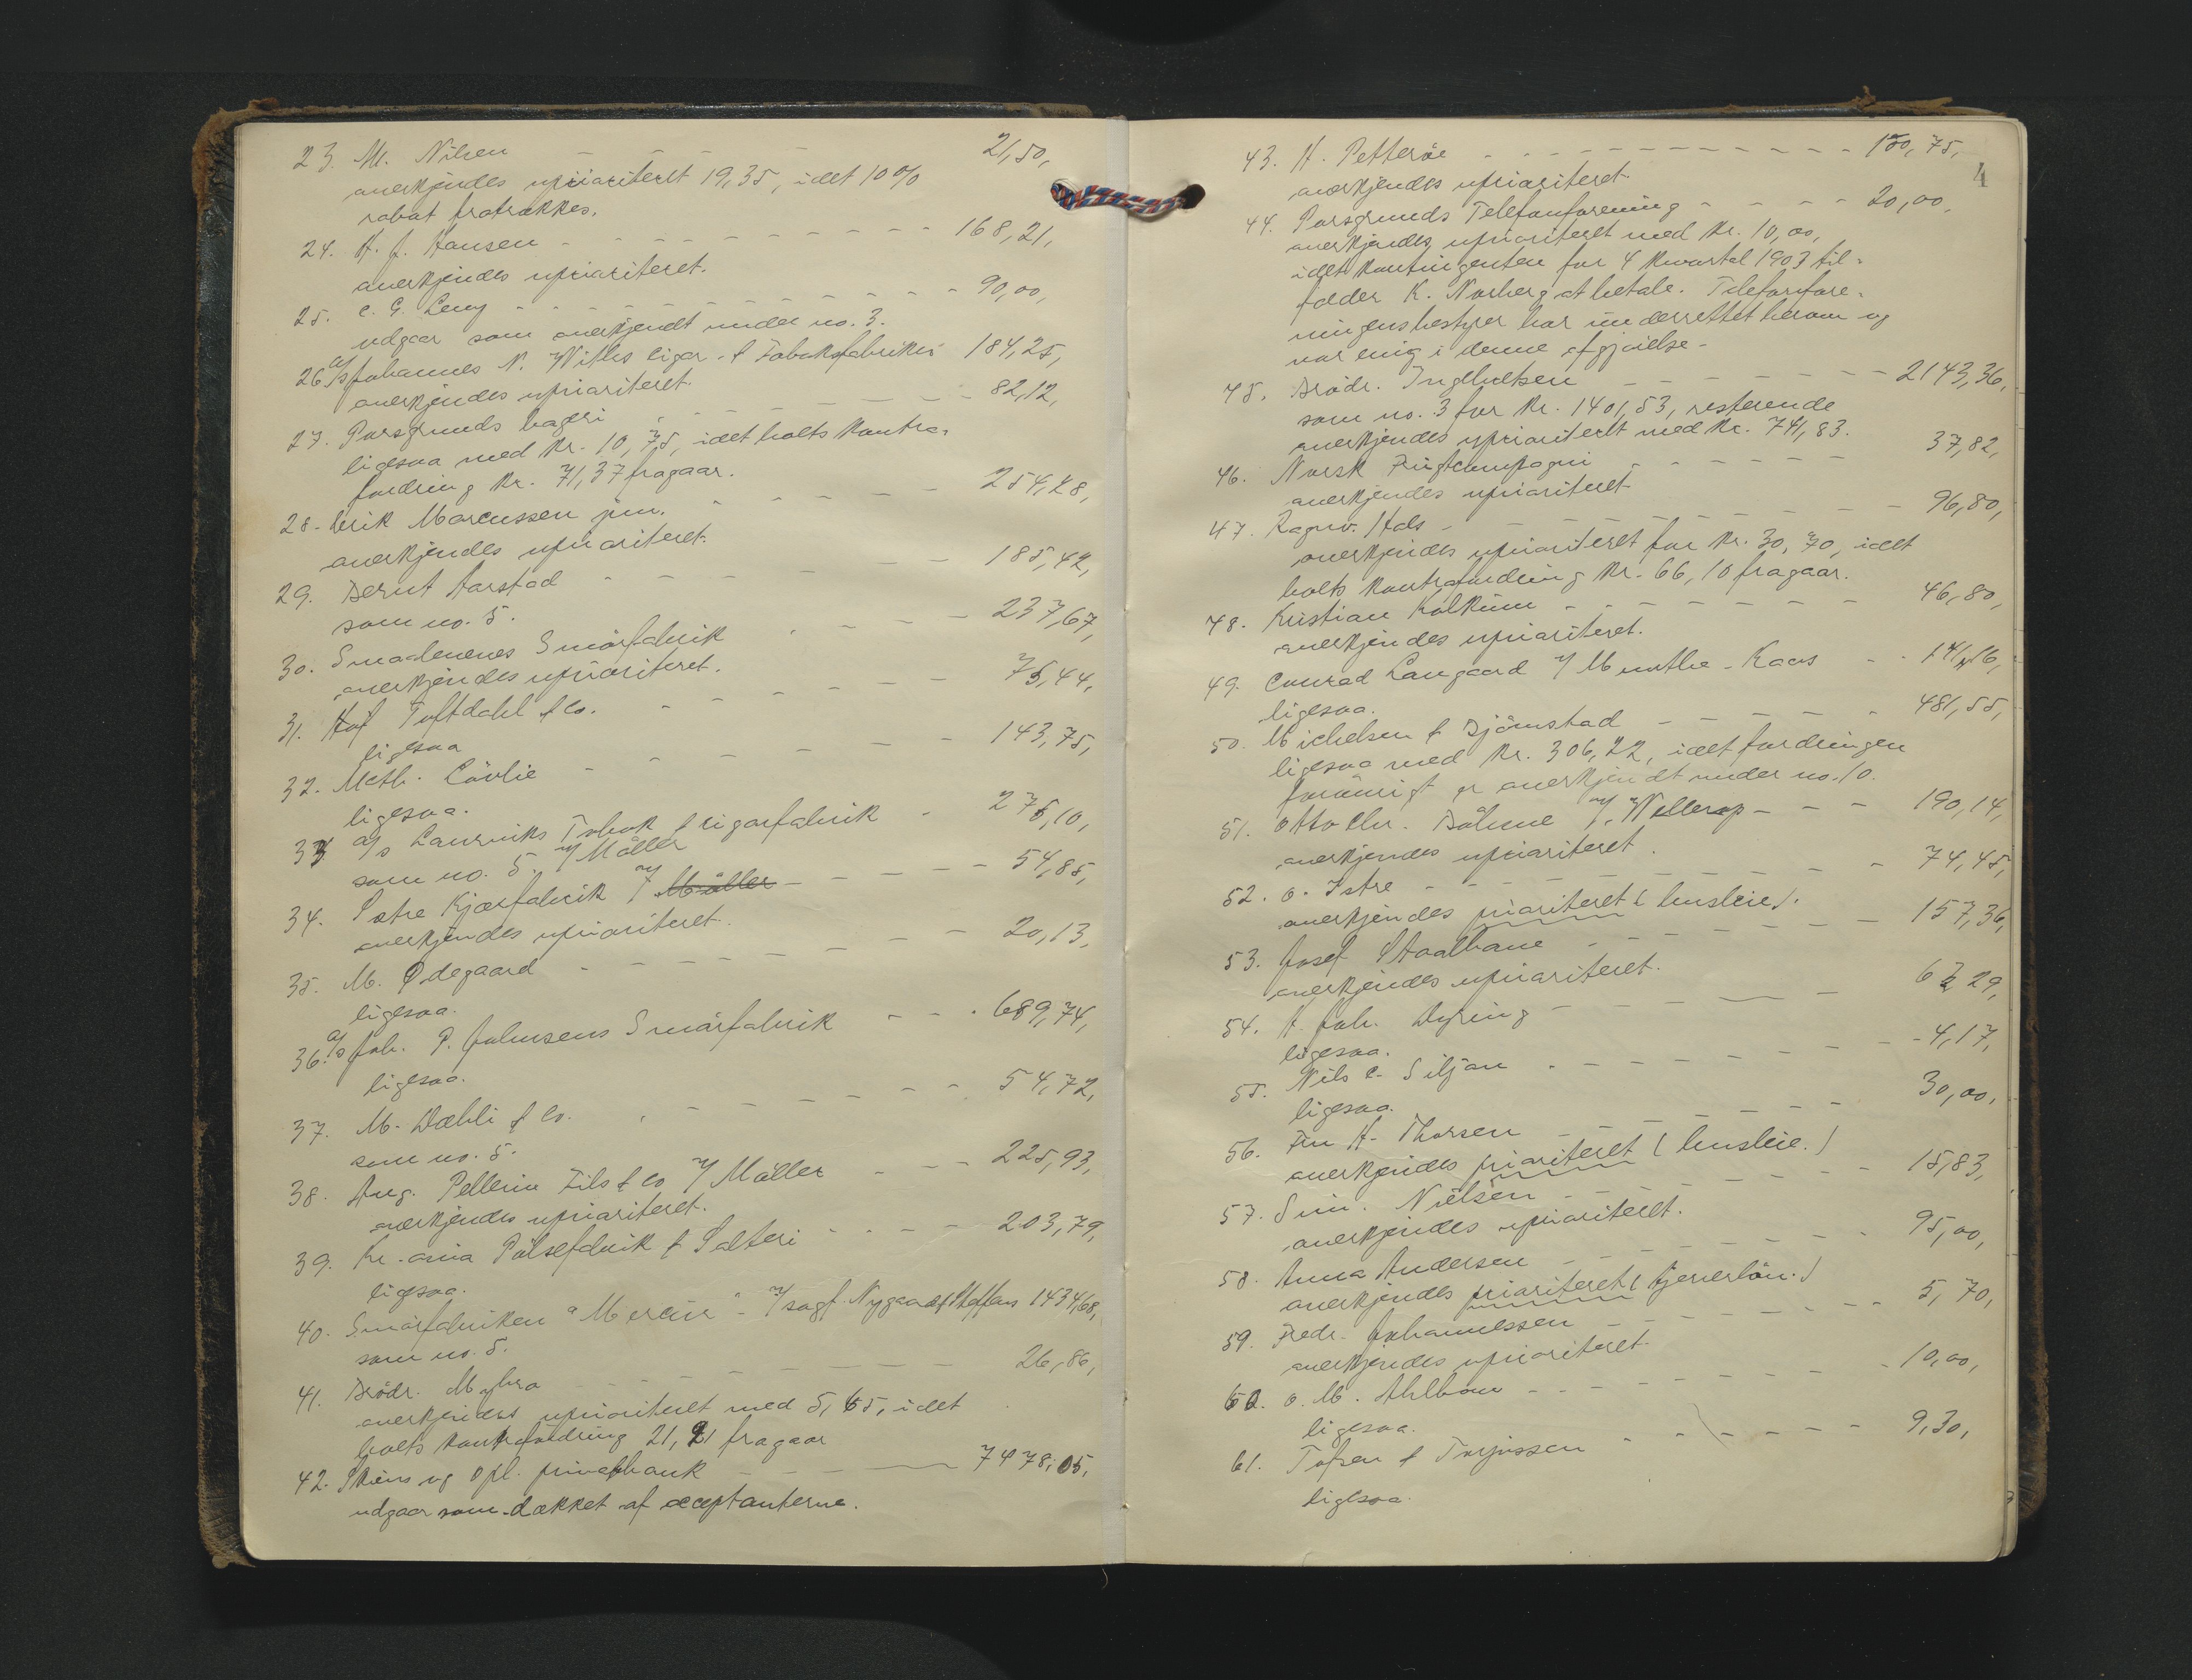 23. M. Nilsen - - - 21,50,
anerkjendes uprioriteret 19,35, idet 10%
rabat fratrækkes.
24. H. J. Hansen - - - 168,21,
anerkjendes uprioriteret.
25. C. G. Leny - - - 90,00,
udgaar som anerkjendt under no. 3.
26 a/s Johannes N. Withs Cigar- & Tobaksfabriker 184,25,
anerkjendes uprioriteret.
27. Porsgrunds bageri - - - 82,12,
ligesaa med Kr. 10,75, idet bolts kontra-
fordring Kr. 71,37 fragaar.
28. Erik Marcussen jun. - - - 254,28,
anerkjendes uprioriteret.
29. Bernt Aarstad - - - 185,42,
som no. 5.
30. Smaalenenes Smörfabrik - - - 237,67,
anerkjendes uprioriteret.
31. Hof Toftdahl & Co. - - - 75,44,
ligesaa
32. Math. Lövlie - - - 143,75,
ligesaa.
33 a/s Laurviks Tobak & cigarfabrik - 275,10,
som no. 5. v/ Möller
34. Sætre Kjæxfabrik v/ Möller - - - 54,85,
anerkjendes uprioriteret.
35. M. Ødegaard - - - 20,13,
ligesaa.
36. a/s Joh. P. Johnsens Smörfabrik - - - 689,74,
ligesaa.
37. M. Dæhli & Co. - - - 54,72,
som no. 5.
38. Aug. Pellerin Fils & Co v/ Möller - - - 225,93,
anerkjendes uprioriteret.
39. Kr.ania Pölsefabrik & Salteri - - - 203,79,
ligesaa.
40. Smörfabriken "Mercur" - v/ sagf. Nygaard & Steffens 1434,68,
som no. 5.
41. Brödr. Myhra - - - 26,86,
anerkjendes uprioriteret med 5,65, idet
bolts kontrafordring 21,21 fragaar
42. Skiens og Opl. privatbank - - - 7478,05,
udgaar som dækket af acceptanterne.
4
43. H. Petteröe - - - 150,75,
anerkjendes uprioriteret.
44. Porsgrunds Telefonforening - - - 20,00,
anerkjendes uprioriteret med Kr. 10,00,
idet kontingenten for 4 kvartal 1903 til-
falder K. Norberg at betale. Telefonfore-
ningens bestyrer har underrettet herom og
var enig i denne afgjörelse.
45. Brödr. Ingebretsen - - - 2143,36,
som no. 3 for Kr. 1401,53, resterende
anerkjendes uprioriteret med Kr. 741,83.
46. Norsk Frugtcompagni - - - 37,82,
anerkjendes uprioriteret.
47. Ragnv. Hals - - - 96,80,
anerkjendes uprioriteret for Kr. 30,70, idet
bolts kontrafordring Kr. 66,10 fragaar.
48. Kristian Kolkinn - - - 46,80,
anerkjendes uprioriteret.
49. Conrad Langaard v/ Munthe-Kaas - - 141,16,
ligesaa.
50. Michelsen & Björnstad - - - 481,55,
ligesaa med Kr. 306,22, idet fordringen
forövrigt er anerkjendt under no. 10.
51. Otto Chr. Böhme v/ Wellerop - - - 190,14,
anerkjendes uprioriteret.
52. O. Istre - - - 74,45,
anerkjendes prioriteret (husleie).
53. Josef Staalhane - - - 157,36,
anerkjendes uprioriteret.
54. H. Joh. Dyring - - - 62 29,
ligesaa.
55. Nils C. Siljan - - - 4,17,
ligesaa.
56. Fru H. Thorsen - - - 30,00,
anerkjendes prioriteret (husleie.)
57. Sim. Nielsen - - - 15,83,
anerkjendes uprioriteret.
58. Anna Andersen - - - 95,00,
anerkjendes prioriteret (tjenerlön.)
59. Fredr. Johannessen - - - 5,70,
anerkjendes uprioriteret.
60. O. M. Ahlbom - - - 10,00,
ligesaa.
61. Tofsen & Torjussen - - - 9,30,
ligesaa.